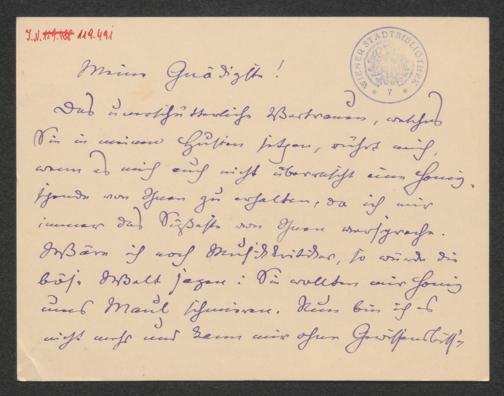 J.N. 119.491
WIENER STADTBIBLIOTHEK
7
Meine Gnädigste!
Das unerschütterliche Vertrauen, welches
Sie in meinen Husten setzen, rührt mich,
wenn es mich auch nicht überrascht eine Honig-
spende von Ihnen zu erhalten, da ich mir
immer das Süßeste von Ihnen verspreche.
Wäre ich noch Musikkritiker, so würde die
böse Welt sagen: Sie wollten mir Honig
ums Maul schmieren. Nun bin ich es
nicht mehr und kann mir ohne Gewissensbiss-